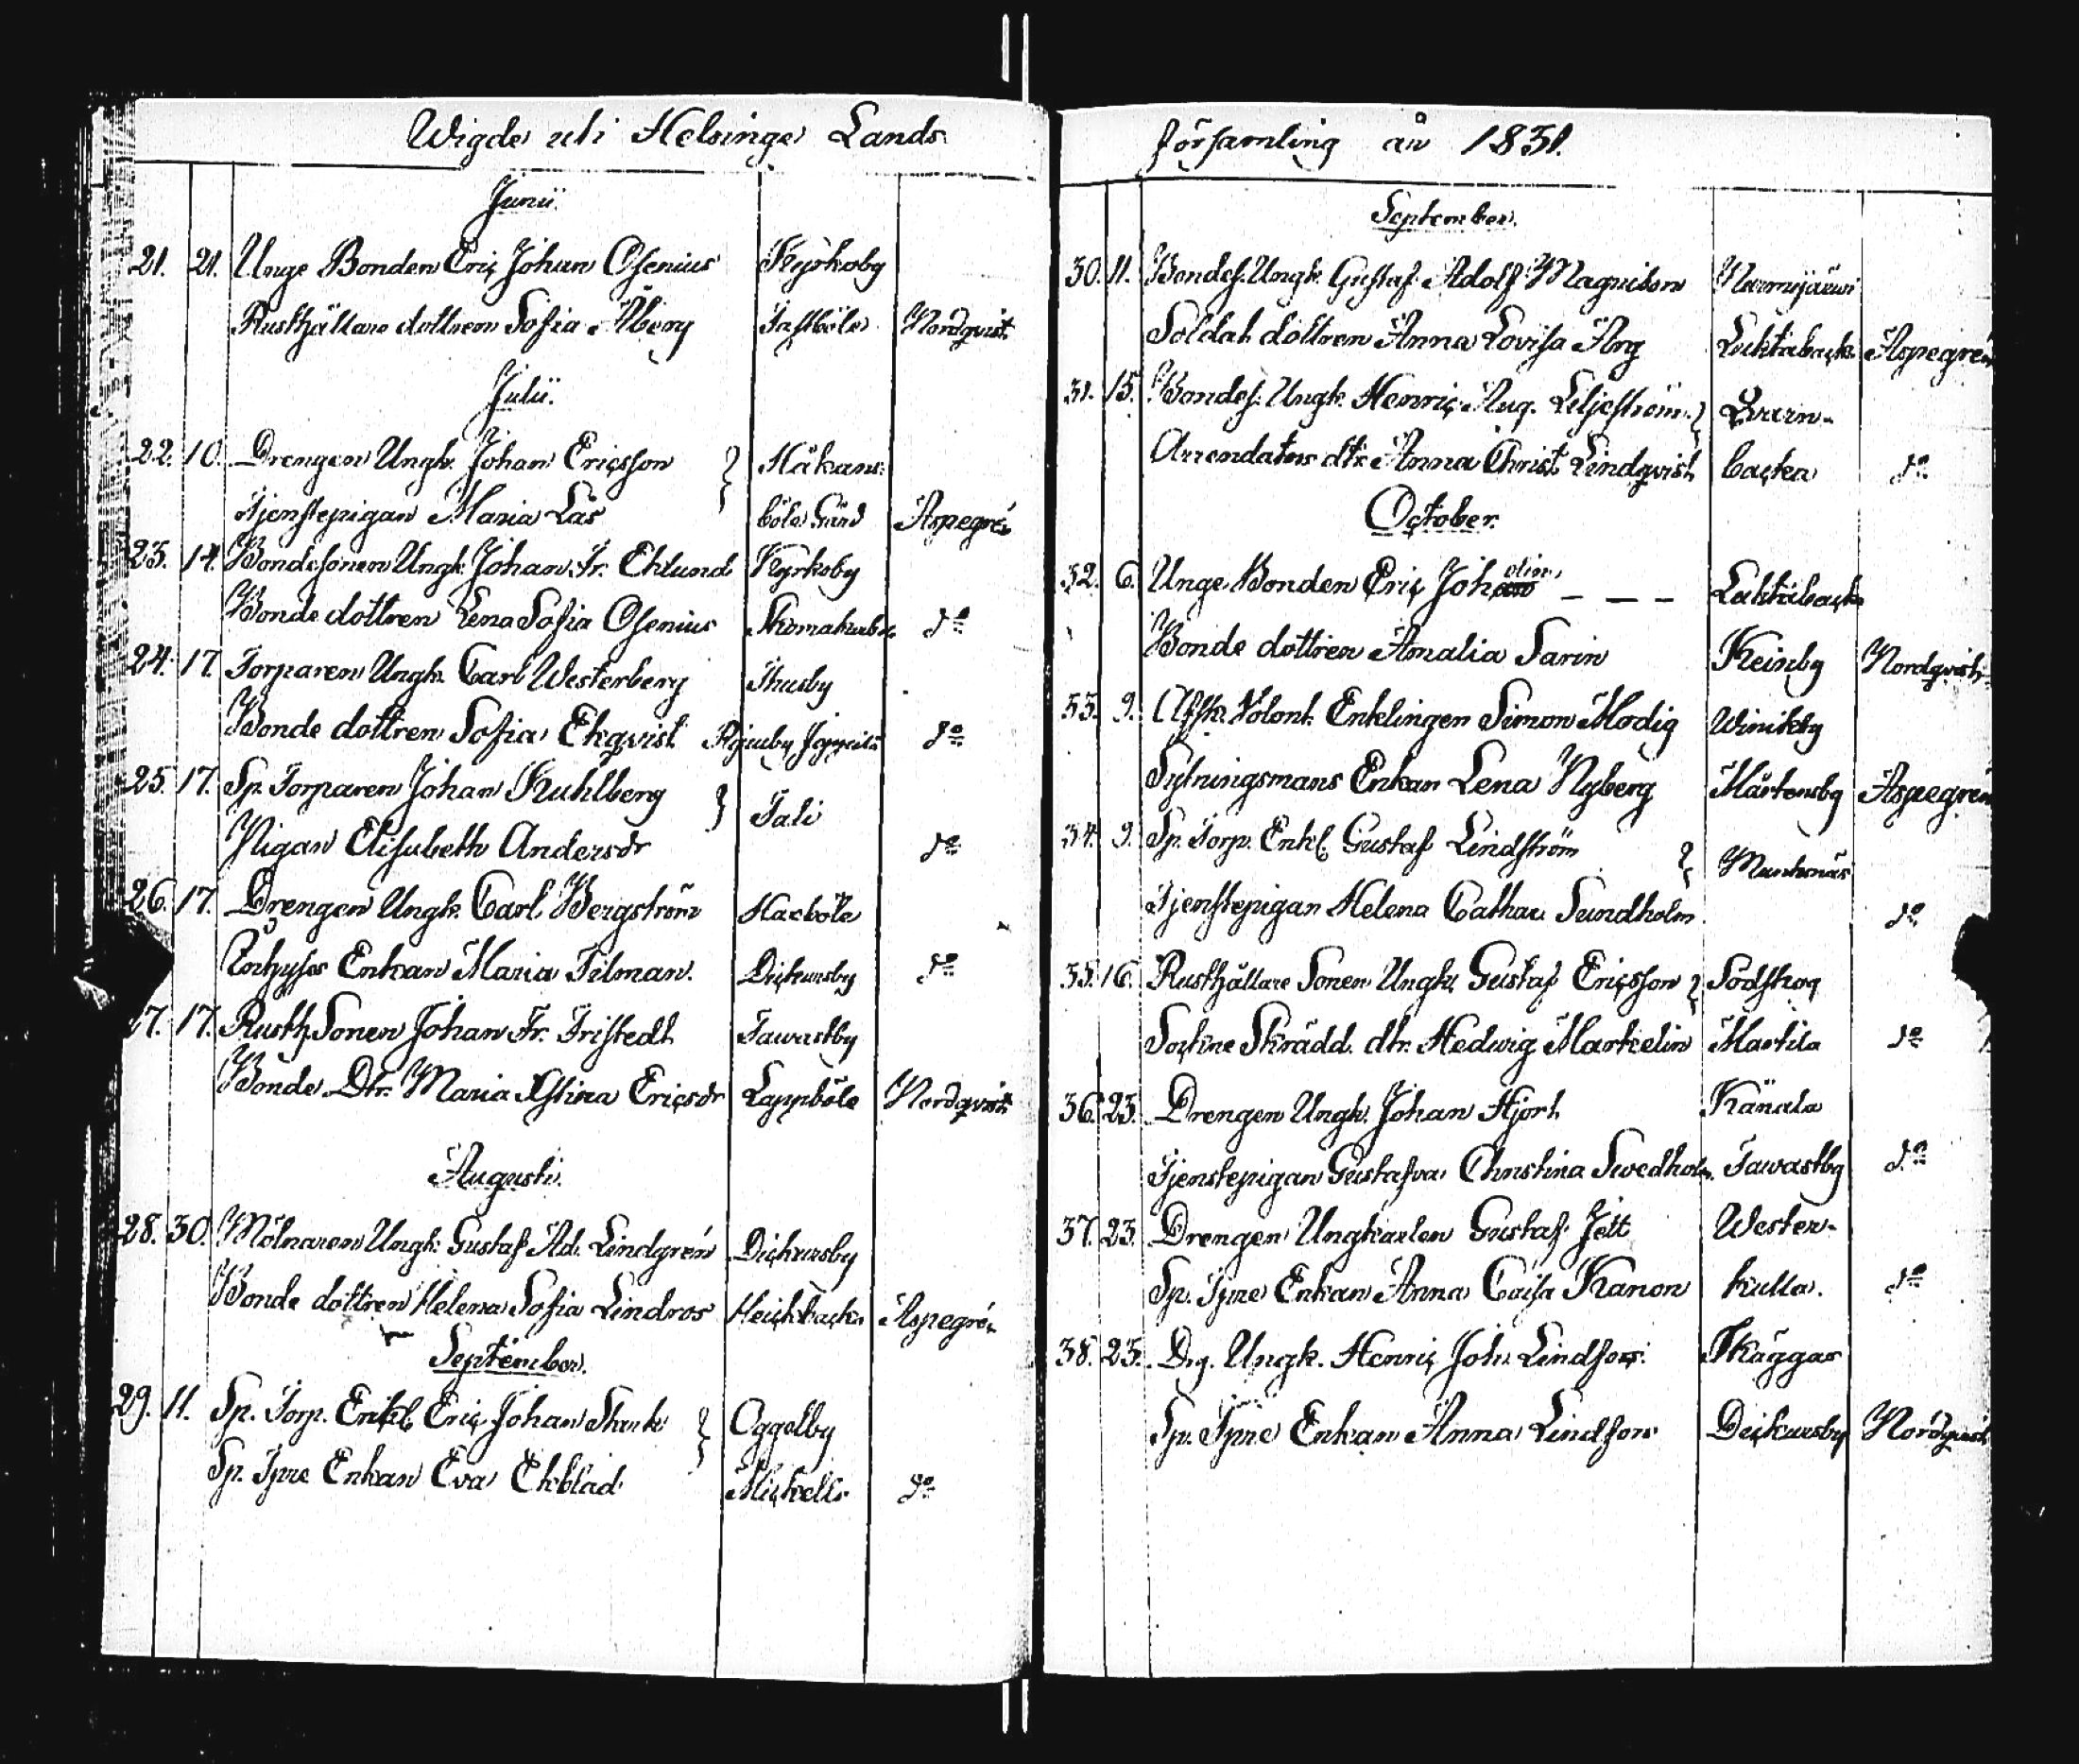 Wigde uti Helsinge Lands
Junii.
21. 21. Unge Bonden Eric Johan Osenius Kyrkoby
Rusthållare dottren Sofia Åberg Tastböle Nordqvist
Julii.
22. 10. Drengen Ungk. Johan Ericsson } Håkans-
Tjenstepigan Maria Lås böle Gård Aspegrén
23. 14. Bondesonen Ungk. Johan Fr. Eklund Kyrkoby
Bonde dottren Lena Sofia Osenius do
24. 17. Torparen Ungk. Carl Westerberg Thusby
Bonde dottren Sofia Ekqvist do
25. 17. Sp. Torparen Johan Kuhlberg } Tali
Pigan Elisabeth Andersdr do
26. 17. Drengen Ungk. Carl Bergström Haxböle
Inhyses Enkan Maria Tilman. Dickursby do
27. 17. Rusth. Sonen Johan Fr. Fristedt Tawastby
Bonde Dtr. Maria Stina Ericsdr Lappböle Nordqvist
Augusti.
28. 30. Mölnaren Ungk. Gustaf Ad. Lindgrén Dickursby
Bonde dottren Helena Sofia Lindros Aspegrén
September.
29. 11. Sp. Torp. Enkl. Eric Johan Stark } Oggelby
Sp. Tjnre Enkan Eva Ekblad Mickels do
församling år 1831.
September.
30. 11. Bondes. Ungk. Gustaf Adolf Magnusson Nurmijärwi
Soldat dottren Anna Lovisa Arg Luktabacka Aspegrén
31. 15. Bondes. Ungk. Henric Aug. Liljeström } Qvarn-
Arrendators dtr Anna Christ. Lindqvist backa do
October.
32. 6. Unge Bonden Eric Joholin — — — Luktabacka
Bonde dottren Amalia Sarin Keinby Nordqvist
33. 9. Afsk. Volont. Enklingen Simon Modig Winikby
Sytningsmans Enkan Lena Nyberg Mårtensby Aspegrén
34. 9. Sp. Torp. Enkl. Gustaf Lindström } Munksnäs
Tjenstepigan Helena Cathar. Sundholm do
35. 16. Rusthållare Sonen Ungk. Gustaf Ericsson } Sodskog
Sockne Skrädd. dtr. Hedwig Markelin Martila do
36. 23. Drengen Ungk. Johan Hjort Kånala
Tjenstepigan Gustafva Christina Swedholm. Tawastby do
37. 23. Drengen Ungkarlen Gustaf Jett Wester-
Sp. Tjnre Enkan Anna Caisa Kanon kulla. do
38. 23. Drg. Ungk. Henric Joh. Lindfors. Skäggas
Sp. Tjnre Enkan Anna Lindfors Dickursby Nordqvist